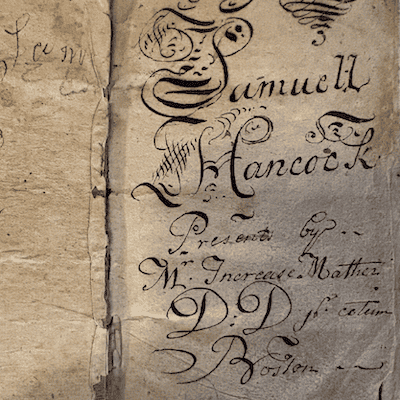 Samuell
Hancock
Present by --
Mr. Increase Mather
D:D
Boston --